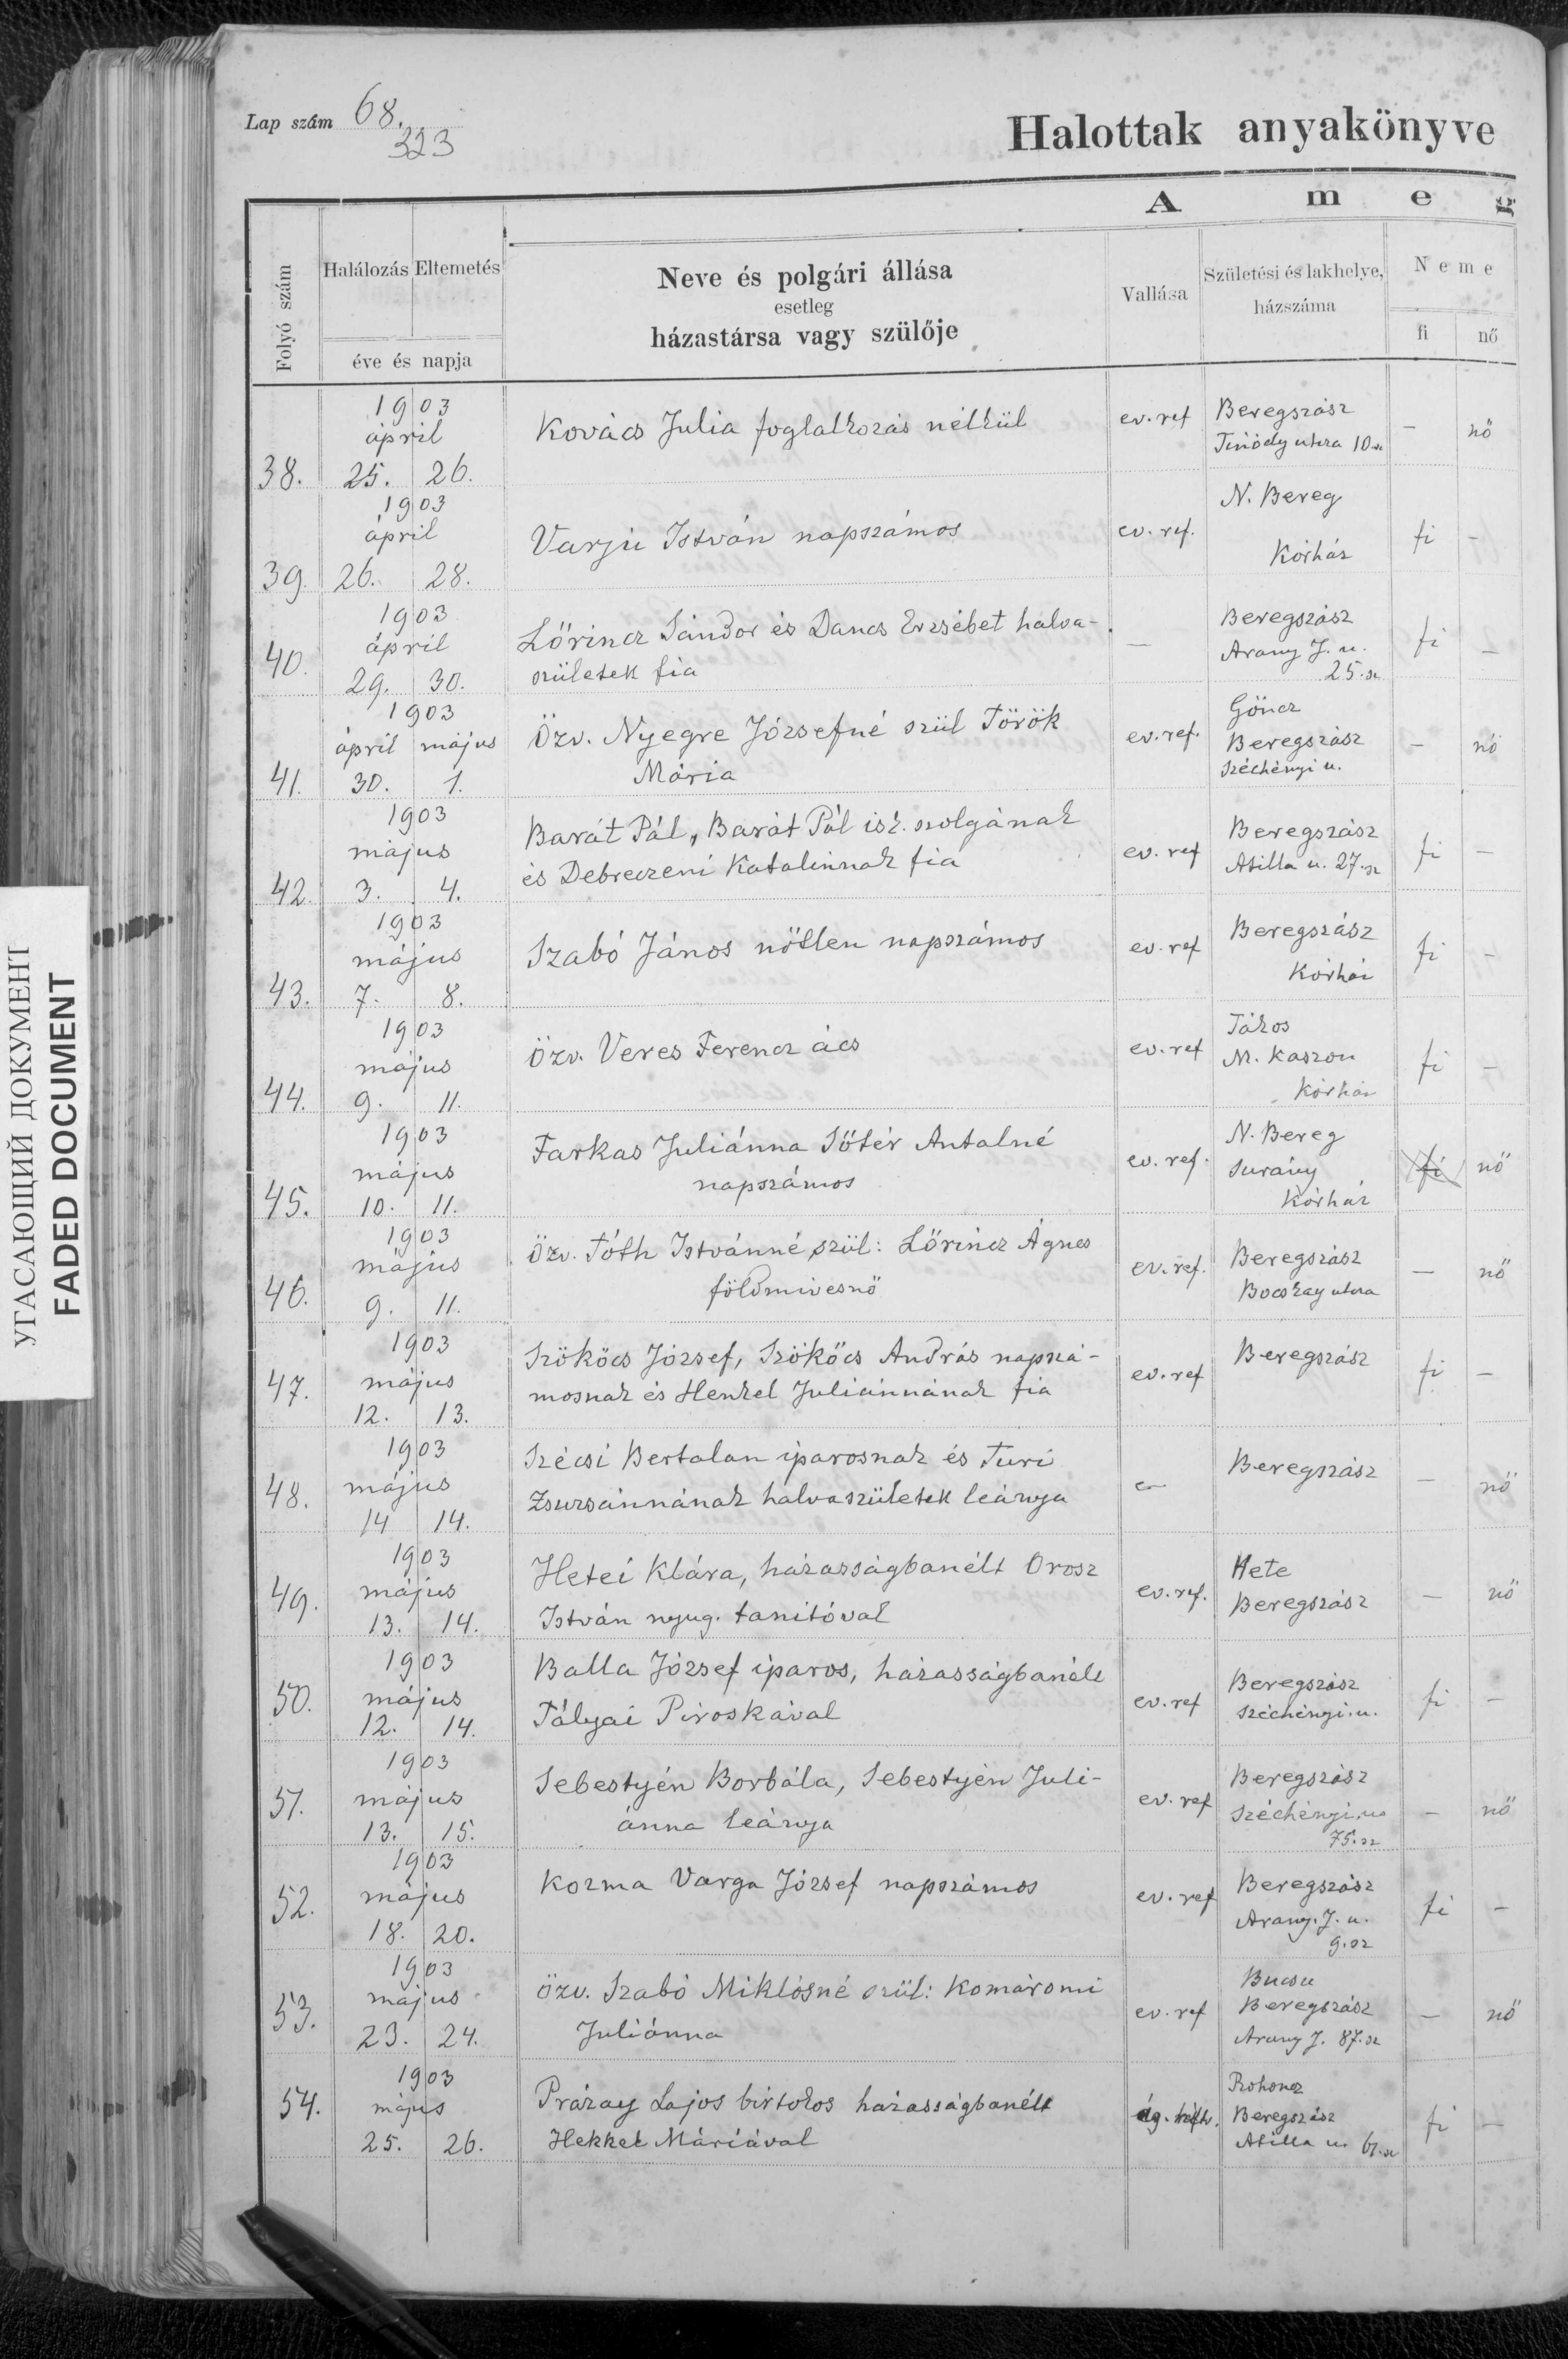 Lap szám 68.
323
Halottak anyakönyve
A m e g
Folyó szám
Halálozás Eltemetés
éve és napja
Neve és polgári állása
esetleg
házastársa vagy szülője
Vallása
Születési és lakhelye,
házszáma
Neme
fi nő
38. 1903 ápril 25. 26.
Kovács Julia foglalkozás nélkül
ev. ref
Beregszász
Tinódy utcza 10 sz
- nő
39. 1903 ápril 26. 28.
Varju István napszámos
ev. ref.
N. Bereg
Kórház
fi -
40. 1903 ápril 29. 30.
Lőrincz Sándor és Dancs Erzsébet halva-
születek fia
-
Beregszász
Arany J. u.
25. sz
fi -
41. 1903 ápril május 30. 1.
Özv. Nyegre Józsefné szül Török
Mária
ev. ref.
Göncz
Beregszász
Széchényi u.
- nő
42. 1903 május 3. 4.
Barát Pál, Barát Pál isk. szolgának
és Debreczeni Katalinnak fia
ev. ref
Beregszász
Atilla u. 27. sz
fi -
43. 1903 május 7. 8.
Szabó János nőtlen napszámos
ev. ref
Beregszász
Kórház
fi -
44. 1903 május 9. 11.
Özv. Veres Ferencz ács
ev. ref
Tákos
M. Kaszon
Kórház
fi -
45. 1903 május 10. 11.
Farkas Juliánna Sőtér Antalné
napszámos
ev. ref.
N. Bereg
Surány
Kórház
fi nő
46. 1903 május 9. 11.
Özv. Tóth Istvánné szül: Lőrincz Ágnes
földmivesnő
ev. ref.
Beregszász
Bocskay utcza
- nő
47. 1903 május 12. 13.
Szököcs József, Szököcs András napszá-
mosnak és Henkel Juliánnának fia
ev. ref
Beregszász
fi -
48. 1903 május 14 14.
Szécsi Bertalan iparosnak és Turi
Zsuzsánnának halvaszületek leánya
Beregszász
- nő
49. 1903 május 13. 14.
Hetei Klára, házasságbanélt Orosz
István nyug. tanitóval
ev. ref.
Hete
Beregszász
- nő
50. 1903 május 12. 14.
Balla József iparos, házasságbanélt
Tályai Piroskával
ev. ref
Beregszász
Széchényi. u.
fi -
51. 1903 május 13. 15.
Sebestyén Borbála, Sebestyén Juli-
ánna leánya
ev. ref
Beregszász
Széchényi. u.
75. sz
- nő
52. 1903 május 18. 20.
Kozma Varga József napszámos
ev. ref
Beregszász
Arany. J. u.
9. sz
fi -
53. 1903 május 23. 24.
Özv. Szabó Miklósné szül: Komáromi
Juliánna
ev. ref
Bucsu
Beregszász
Arany J. 87. sz
- nő
54. 1903 május 25. 26.
Prázay Lajos birtokos házasságbanélt
Hekkel Máriával
ág. hitv.
Rohoncz
Beregszász
Atilla u. 61. sz
fi -
УГАСАЮЩИЙ ДОКУМЕНТ
FADED DOCUMENT